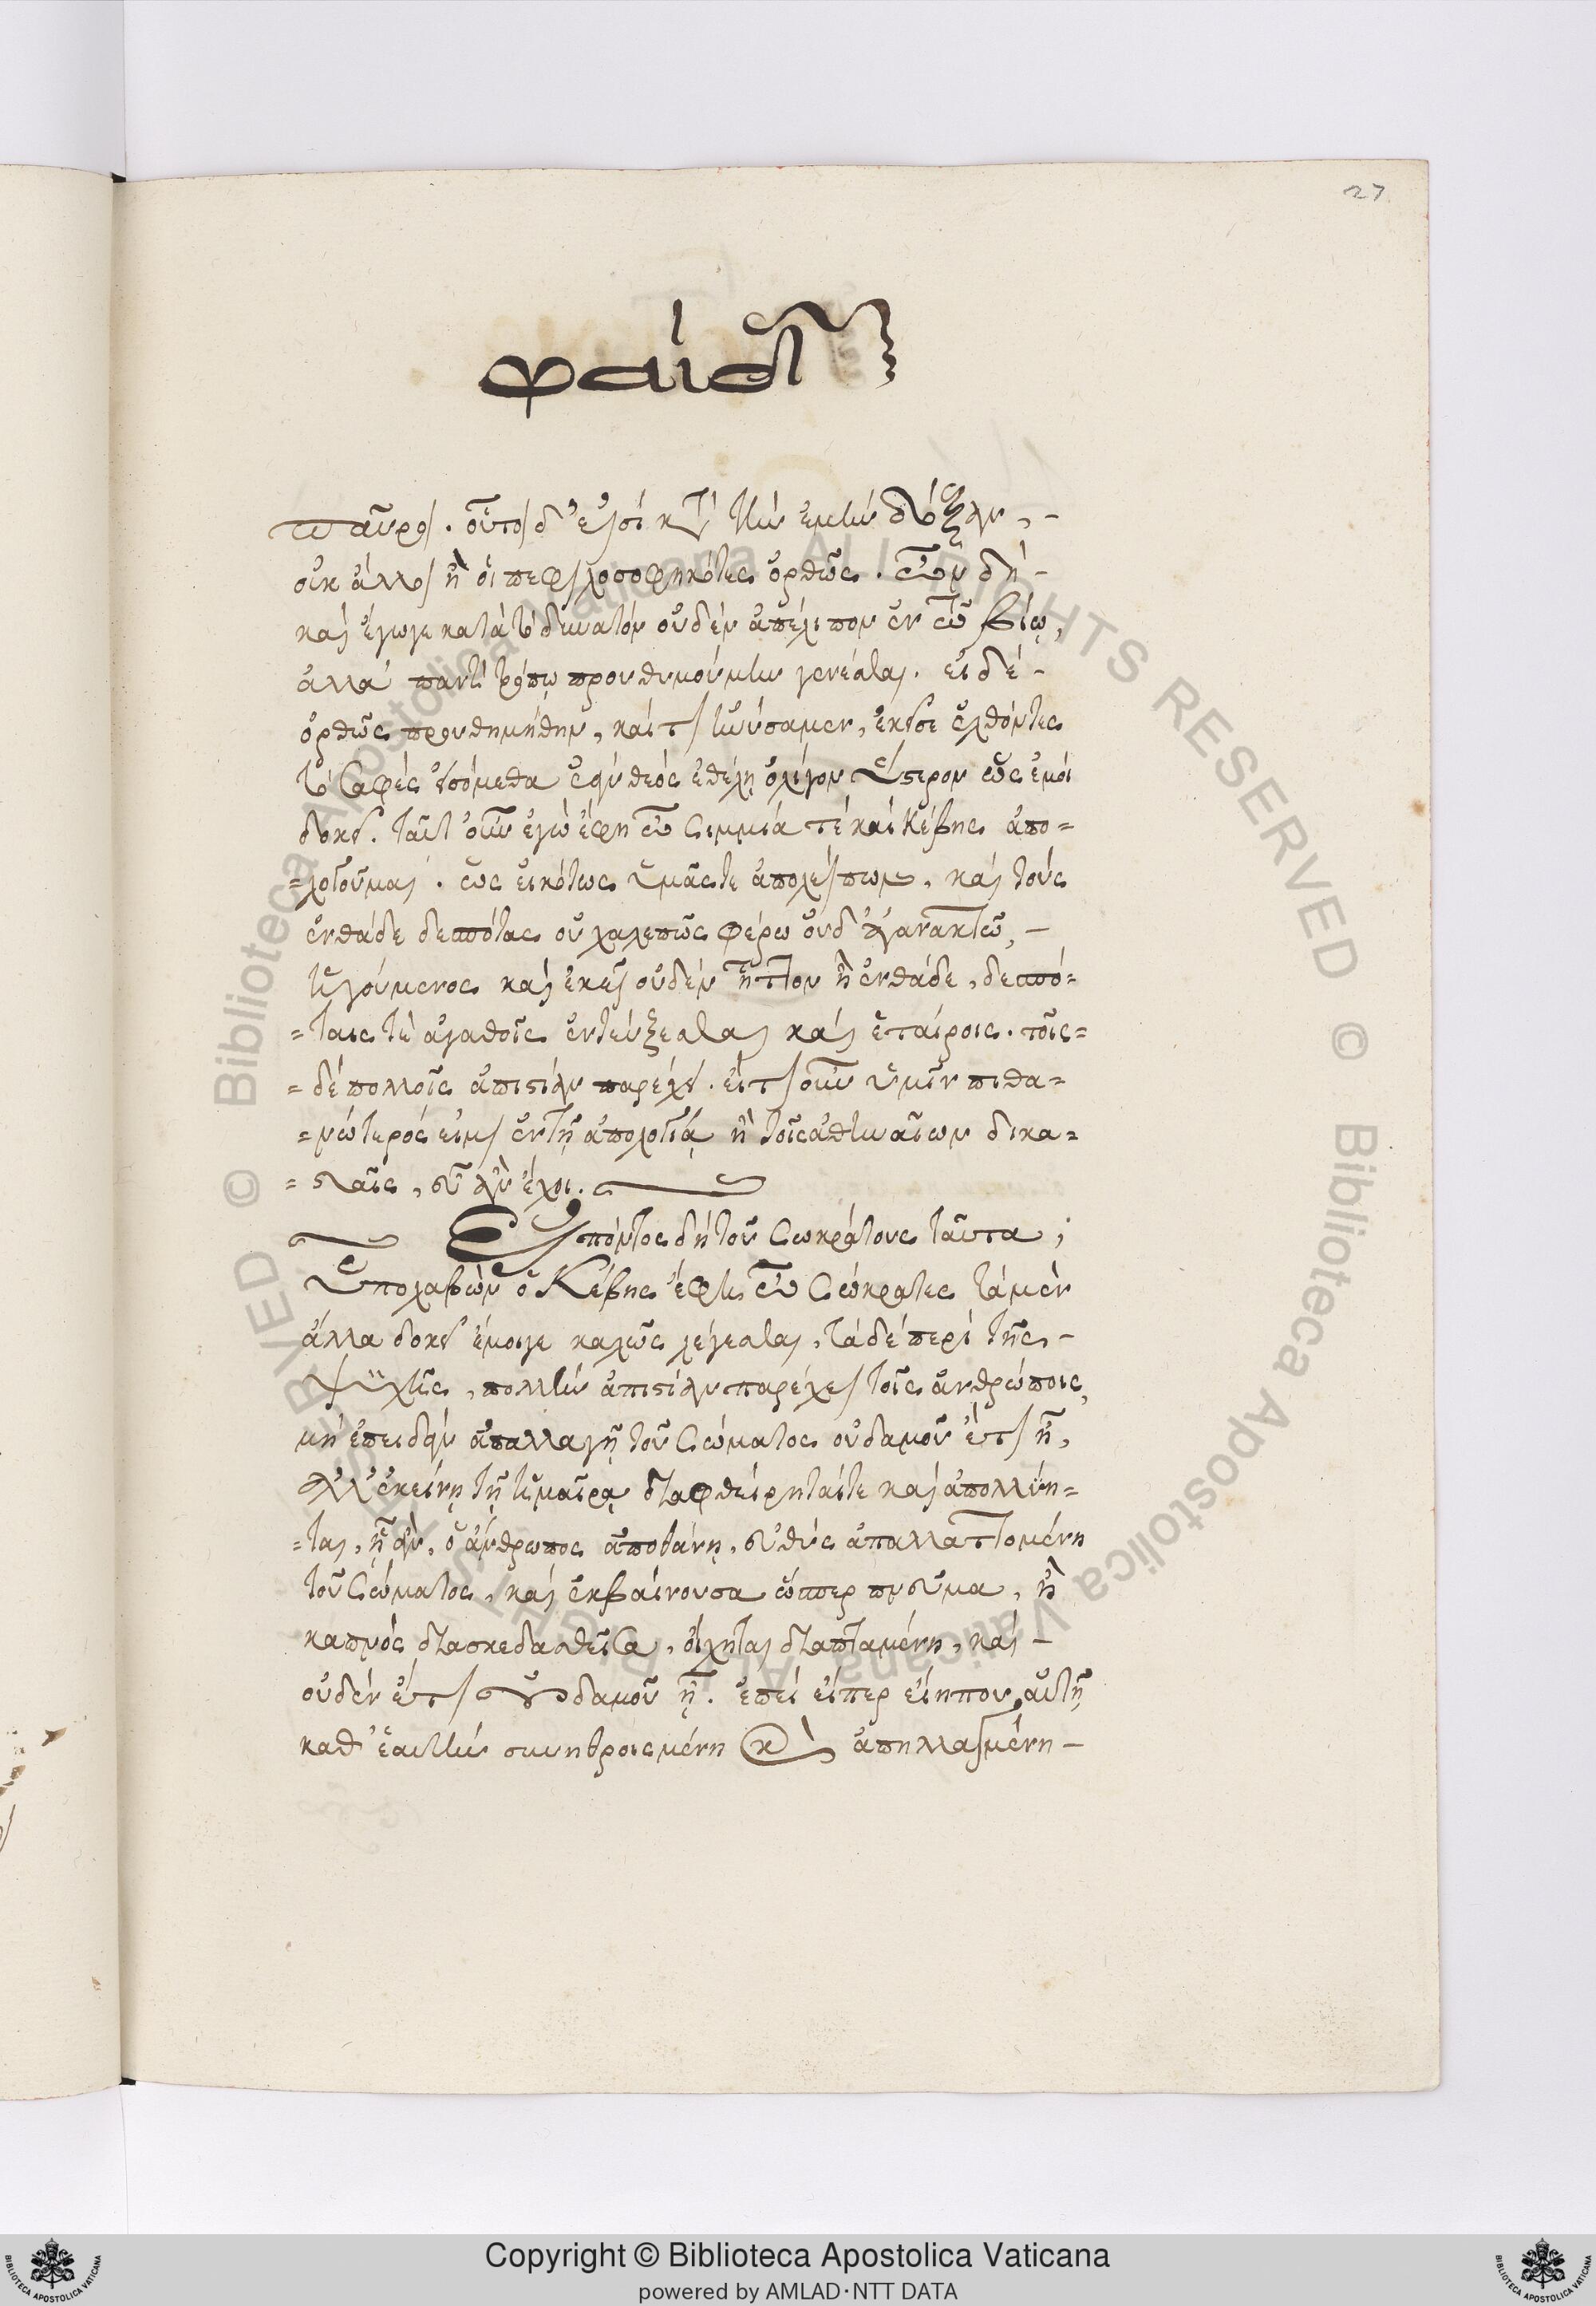 27
φαίδων
παῦροι. οὗτοι δ' εἰσὶ κατὰ τὴν ἐμὴν δόξαν, -
οὐκ ἄλλοι ἢ οἱ πεφιλοσοφηκότες ὀρθῶς. ὧν δή -
καὶ ἔγωγε κατὰ τὸ δυνατόν οὐδὲν ἀπέλιπον ἐν τῷ βίῳ,
ἀλλὰ παντὶ τρόπῳ προυθυμούμην γενέσθαι. εἰ δέ -
ὀρθῶς προυθημήθην, καί τι ἠνύσαμεν, ἐκεῖσε ἐλθόντες
τὸ σαφὲς εἰσόμεθα ἐὰν θεός ἐθέλῃ ὀλίγον ὕστερον ὡς ἐμοί
δοκεῖ. ταῦτ' οὖν ἐγὼ ἔφη ὦ σιμμία τέ καὶ κέβης ἀπο=
=λογοῦμαι. ὡς εἰκότως ὑμᾶς τε ἀπολείπων, καὶ τοὺς
ἐνθάδε δεσπότας οὐ χαλεπῶς φέρω οὐδ' ἀγανακτῶ, -
ἡγούμενος καὶ ἐκεῖ οὐδὲν ἧττον ἢ ἐνθάδε, δεσπό=
=ταις τὲ ἀγαθοῖς ἐντεύξεσθαι καὶ ἑταίροις. τοῖς=
=δὲ πολλοῖς ἀπιστίαν παρέχει. εἴ τι οὖν ὑμῖν πιθα=
=νώτερός εἰμι ἐν τῇ ἀπολογίᾳ ἢ τοῖς ἀθηναίων δικα=
=σταῖς, εὖ ἂν ἔχοι.
Εἰπόντος δὴ τοῦ σωκράτους ταῦτα;
ὑπολαβὼν ὁ Κέβης ἔφη ὦ σώκρατες τὰ μὲν
ἄλλα δοκεῖ ἔμοιγε καλῶς λέγεσθαι, τὰ δὲ περὶ τῆς -
ψϋχῆς, πολλὴν ἀπιστίαν παρέχει τοῖς ἀνθρώποις,
μὴ ἐπειδὰν ἀπαλλαγῇ τοῦ σώματος οὐδαμοῦ ἔτι ῇ,
ἀλλ' ἐκείνῃ τῇ ἡμαῖρᾳ διαφθείρηταί τε καὶ ἀπολλύη=
=ται, ᾗ ἂν, ὁ ἄνθρωπος ἀποθάνῃ, εὐθὺς ἀπαλλαττομένη
τοῦ σώματος, καὶ ἐκβαίνουσα ὥσπερ πνεῦμα, ἢ
καπνὸς διασκεδασθεῖσα, οἴχηται διαπταμένη, καὶ -
οὐδὲν ἔτι οὐδαμοῦ ᾖ. ἐπεὶ εἴπερ εἴη που, αὐτῇ
καθ' ἑαυτὴν συνηθροισμένη καὶ ἀπηλλαγμένη -